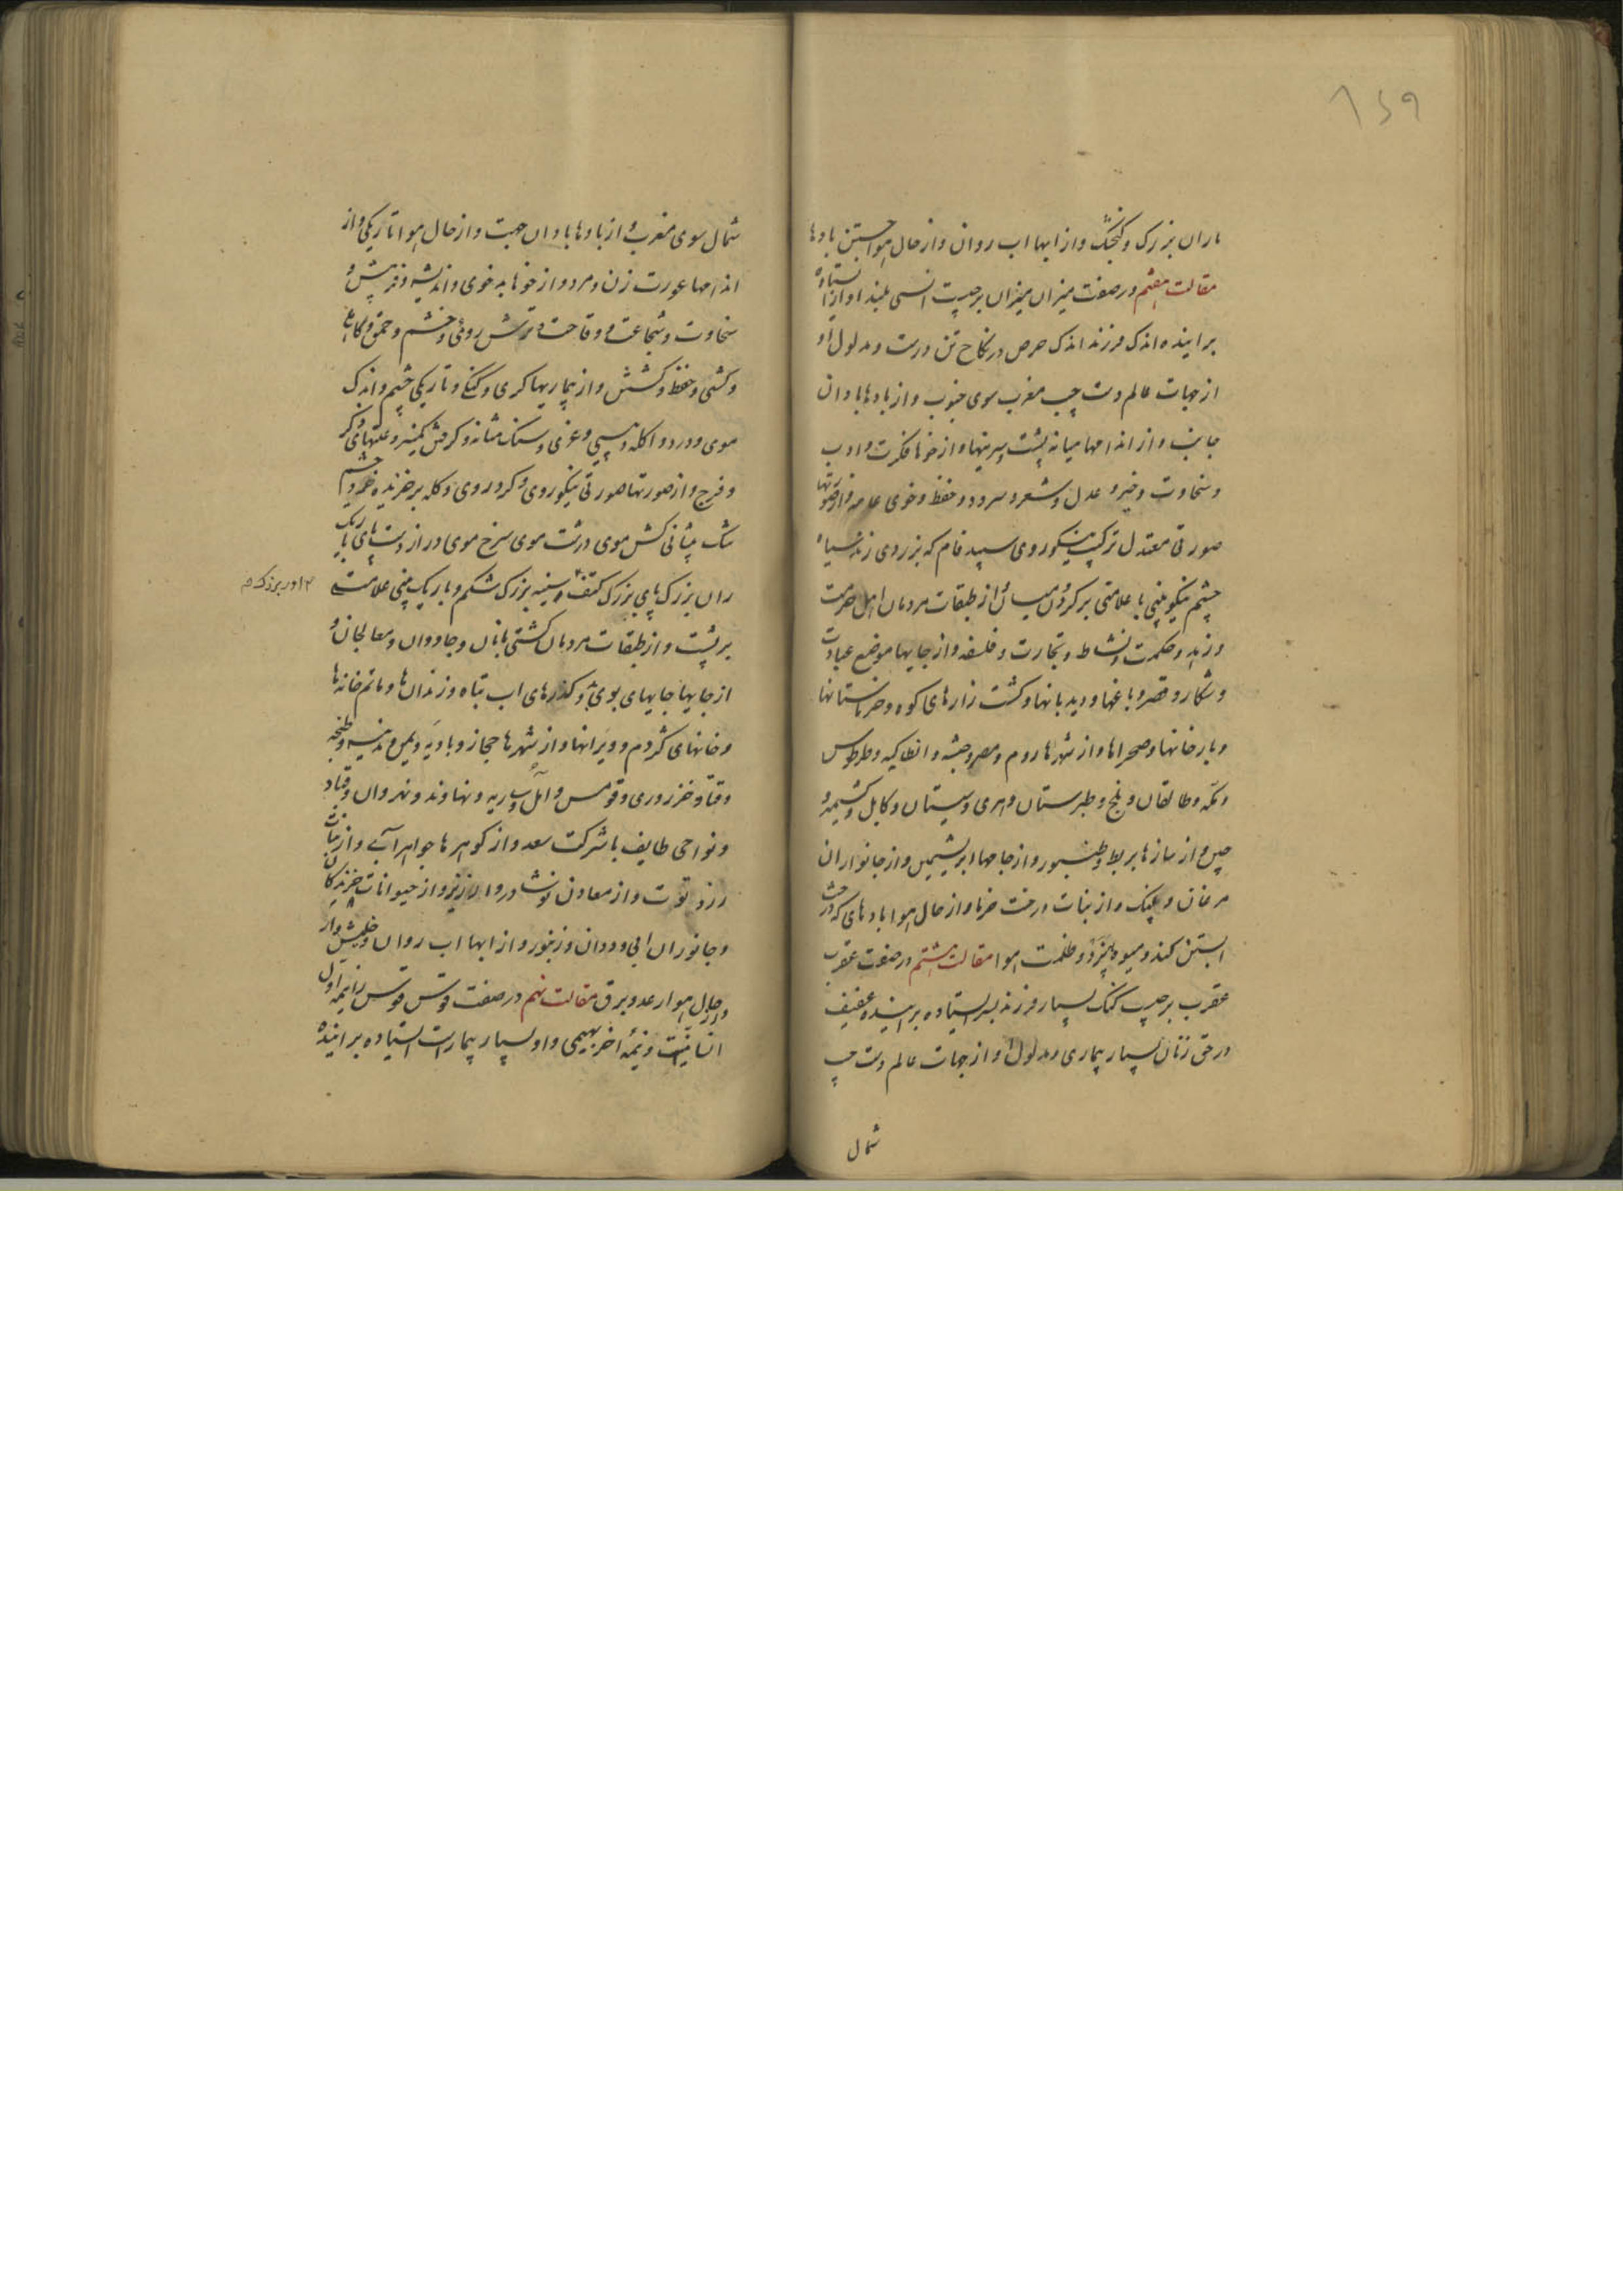 ۱۵۹
ماران بزرک و کنجشک و از ابها اب روان و از حال هوا جستن بادها
مقالت هفتم در صفت میزان میزان برجیست انسی بلند اواز استاده
براینده اندک فرزند اندک حرص در نکاح تن درست و مدلول او
از جهات عالم دست چپ مغرب سوی جنوب و از بادها بادان
جانب و از اندامها میانه پشت و سرینها و از خوها فکرت و ادب
و سخاوت و خیر و عدل و شعر و سرود و حفظ و خوی عامه و از صورتها
صورتی معتدل ترکیب نیکوروی سپید فام که بزردی زند سیاه
چشم نیکو بینی با علامتی بر کردن میان از طبقات مردمان اهل حرمت
و زهد و حکمت و نشاط و تجارت و فلسفه و از جایها موضع عبادت
و شکار و قصر و باغها و دیدبانها و کشت زارهای کوه و خرماستانها
و بارخانها و صحراها و از شهرها روم و مصر و حبشه و انطاکیه و طرطوس
و مکه و طالقان و بلخ و طبرستان و هری و سیستان و کابل و کشمیر و
چین و از سازها بربط و طنبور و از جامها ابریشمین و از جانواران
مرغان و پلنک و از نبات درخت خرما و از حال هوا بادهای که درخت
ابستن کند و میوه پزد و ظلمت هوا مقالت هشتم در صفت عقرب
عقرب برجیست کنک بسیار فرزند بسر استاده براینده عفیف
در حق زنان بسیار بیماری و مدلول او از جهات عالم دست چپ
شمال
شمال سوی مغرب و از بادها بادان جهت و از حال هوا تاریکی و از
اندامها عورت زن و مرد و از خوها بدخوی و اندیشه و فریب و
سخاوت و شجاعت و وقاحت و ترش روئی و خشم و حمق و کاهلی
و کشی و حفظ و کشش و از بیماریها کری و کنکی و تاریکی چشم و اندک
موی و درد و اکله و پیسی و غری و سنک مثانه و کرفتن کمیز و علتهای ذکر
و فرج و از صورتها صورتی نیکوروی و کرد روی و کله بر خزیده خرد چشم
تنک پیشانی کش موی درشت موی سرخ موی دراز دست پای باریک
ران بزرک پای بزرک کتف و سینه بزرک شکم و باریک بینی علامت
بر پشت و از طبقات مردمان کشتی بانان و جادوان و معالجان و
از جایها جایهای بوی بد و کذرهای اب تباه و زندانها و ماتم خانها
و خانهای کژدم و ویرانها و از شهرها حجاز و بادیه و یمن و مدینه و طنجه
و قتا و خزر و ری و قومس و آمل و ساریه و نهاوند و نهروان و قباد
و نواحی طایف با شرکت سعد و از کوهرها جواهر آبی و از نبات
رز و توت و از معادن نوشادر و ارزیز و از حیوانات خزندکان
و جانوران ابی و ددان و زنبور و از ابها اب روان و خلیش وار
و از حال هوا رعد و برق مقالت نهم در صفت قوس قوس را نیمه اول
انسانیست و نیمه اخر بهیمی و او بسیار بیمارست استاده براینده